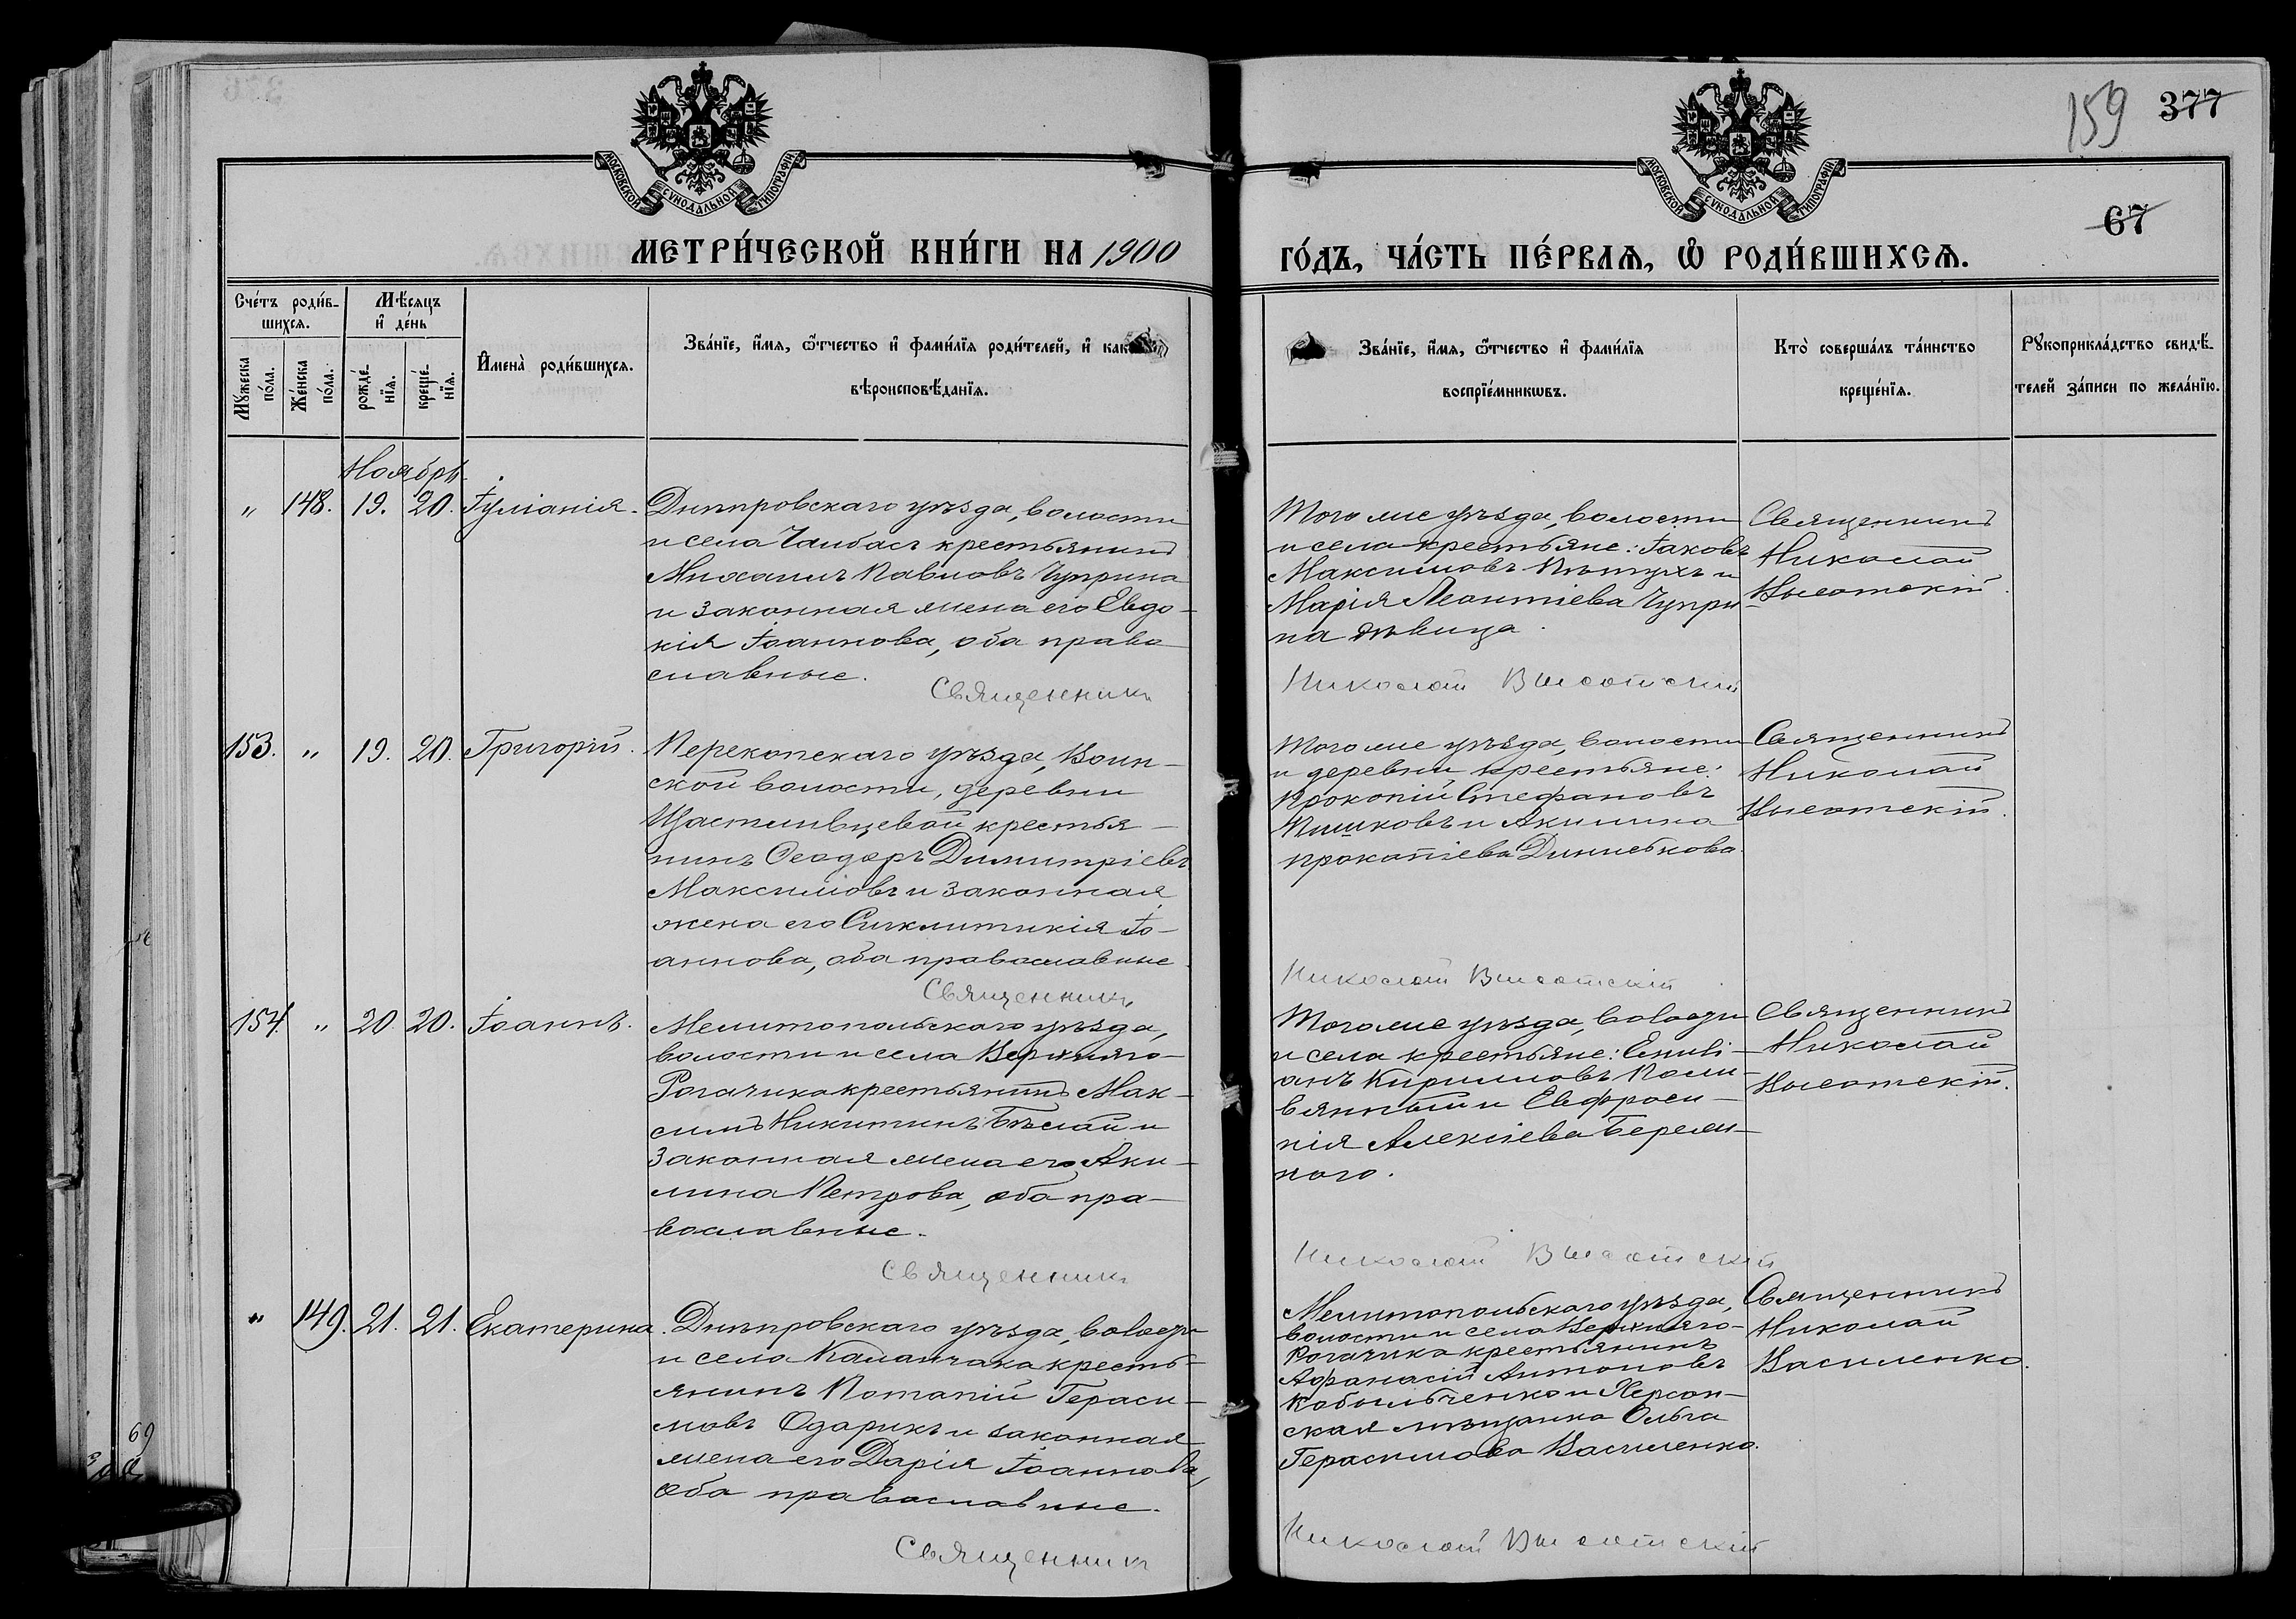 159 377
67
МОСКОВСКОЙ СѴНОДАЛЬНОЙ ТИПОГРАФІИ
МОСКОВСКОЙ СѴНОДАЛЬНОЙ ТИПОГРАФІИ
МЕТРИ́ЧЕСКОЙ КНИ́ГИ НА 1900
ГО́ДЪ, ЧА́СТЬ ПЕ́РВАѦ, Ѡ РОДИ́ВШИХСѦ.
Сче́тъ роди́в-
шихсѧ.
Мѣ́сяцъ
и҆ де́нь
Мꙋ́жеска
по́ла.
Же́нска
по́ла.
рожде́-
нїѧ.
креще́-
нїѧ.
И҆мена̀ роди́вшихсѧ.
Зва́нїе, и҆́мѧ, ѻ҆́тчество и҆ фами́лїѧ роди́телей, и҆ как
вѣроисповѣ́данїѧ.
Зва́нїе, и҆́мѧ, ѻ҆́тчество и҆ фами́лїѧ
воспрїе́мникωвъ.
Кто̀ соверша́лъ та́инство
креще́нїѧ.
Рꙋкоприкла́дство свидѣ́-
телей за́писи по жела́нїю.
Ноябрь.
" 148. 19. 20. Іуліанія.
Днѣпровскаго уѣзда, волости
и села Чалбасъ крестьянинъ
Михаилъ Павловъ Чуприна
и законная жена его Евдо-
кія Іоаннова, оба право
славные.
Священникъ
Того же уѣзда, волости
и села крестьяне: Іаковъ
Максимовъ Пѣтухъ и
Марія Леонтіева Чупри-
на дѣвица.
Николай Высотскій
Священникъ
Николай
Высотскій.
153. " 19. 20. Григорій.
Перекопскаго уѣзда, Воин-
ской волости, деревни
Щастливцевой крестья-
нинъ Ѳеодоръ Димитріевъ
Максимовъ и законная
жена его Синклитикія Іо-
аннова, оба православные
Священникъ
Того же уѣзда, волости
и деревни крестьяне:
Прокопій Стефановъ
Пишковъ и Акилина
Прокопіева
Николай Высотскій
Священникъ
Николай
Высотскій.
154. " 20. 20. Іоаннъ.
Мелитопольскаго уѣзда,
волости и села Верхняго-
Рогачика крестьянинъ Мак-
симъ Никитинъ Бѣлай и
законная жена его Аки-
лина Петрова, оба пра-
вославные.
Священникъ
Того же уѣзда, волости
и села крестьяне: Емилі-
анъ Кирилловъ Поли-
вянный и Евфроси-
нія Алексіева Бережи-
ного.
Николай Высотскій
Священникъ
Николай
Высотскій.
" 149. 21. 21. Екатерина.
Днѣпровскаго уѣзда, волости
и села Каланчака кресть-
янинъ Потапій Гераси-
мовъ Одарикъ и законная
жена его Дарія Іоаннова,
оба православные.
Священникъ
Мелитопольскаго уѣзда,
волости и села Верхняго-
Рогачика крестьянинъ
Афанасій Антоновъ
Кобыльченко и Херсон-
ская мѣщанка Ольга
Герасимова Василенко.
Николай Высотскій
Священникъ
Николай
Василенко.
69